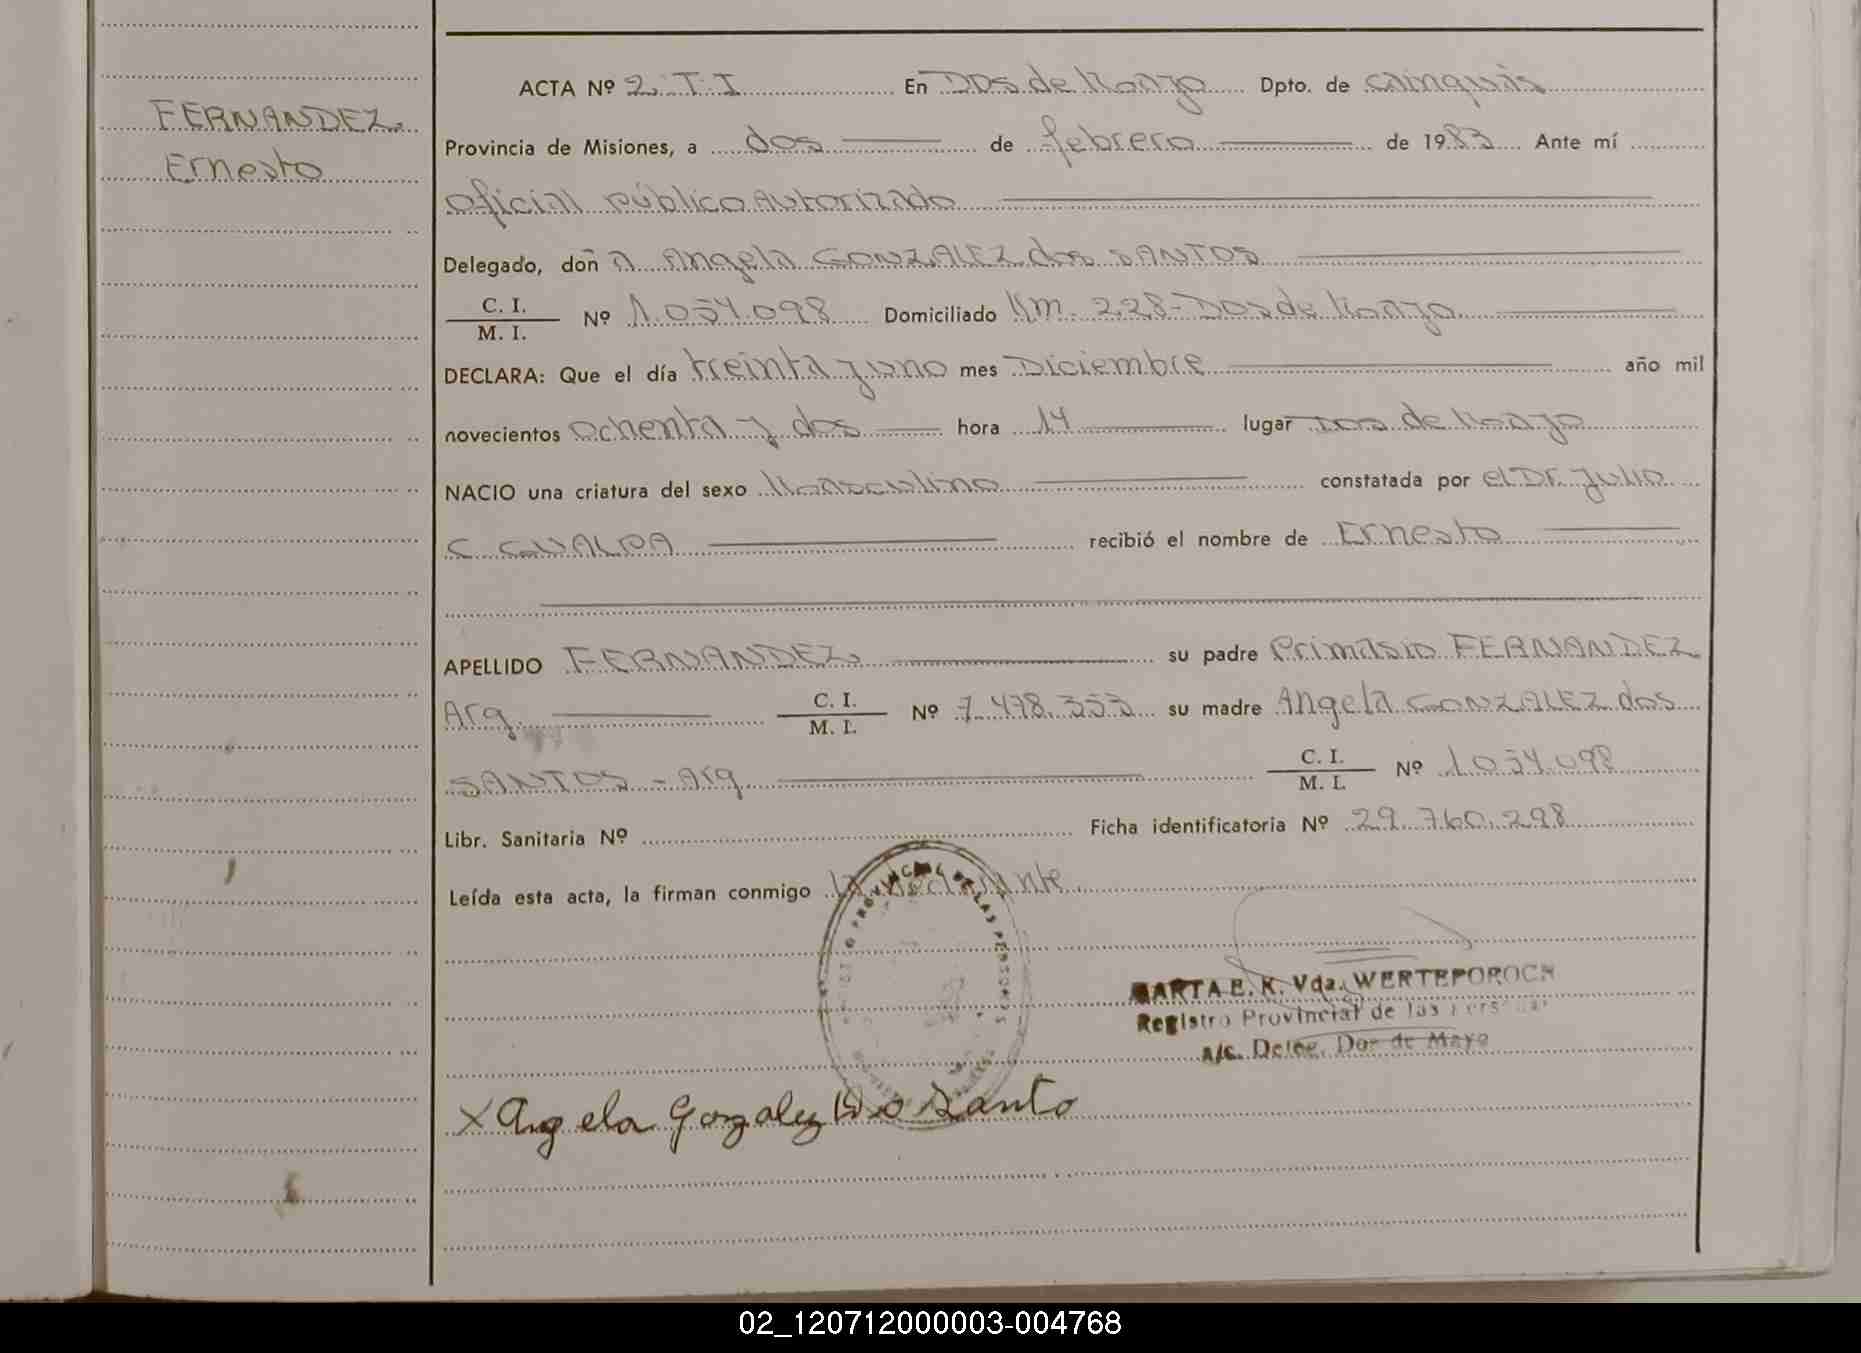 FERNANDEZ
Ernesto
ACTA Nº 2. T. I En Dos de Mayo Dpto. de Cainguás
Provincia de Misiones, a dos de febrero de 1983 Ante mí
Oficial público Autorizado
Delegado, doñ A Angela GONZALEZ dos SANTOS
C. I.
M. I. Nº 1.054.098 Domiciliado Km. 228-Dos de Mayo
DECLARA: Que el día treinta y uno mes Diciembre año mil
novecientos ochenta y dos hora 14 lugar Dos de Mayo
NACIO una criatura del sexo Masculino constatada por el Dr. Julio
C. recibió el nombre de Ernesto
APELLIDO FERNANDEZ su padre Primasio FERNANDEZ
Arg. C. I.
M. I. Nº 7.478.353 su madre Angela GONZALEZ dos
SANTOS - Arg. C. I.
M. I. Nº 1.054.098
Libr. Sanitaria Nº Ficha identificatoria Nº 29.760.298
Leída esta acta, la firman conmigo la declarante
PROVINCIAL DE LAS PERSONAS
MARTA E. K. Vda. WERTEPOROCH
Registro Provincial de las Personas
A/C. Deleg. Dos de Mayo
X Angela Gonzalez Do Santo
02_120712000003-004768